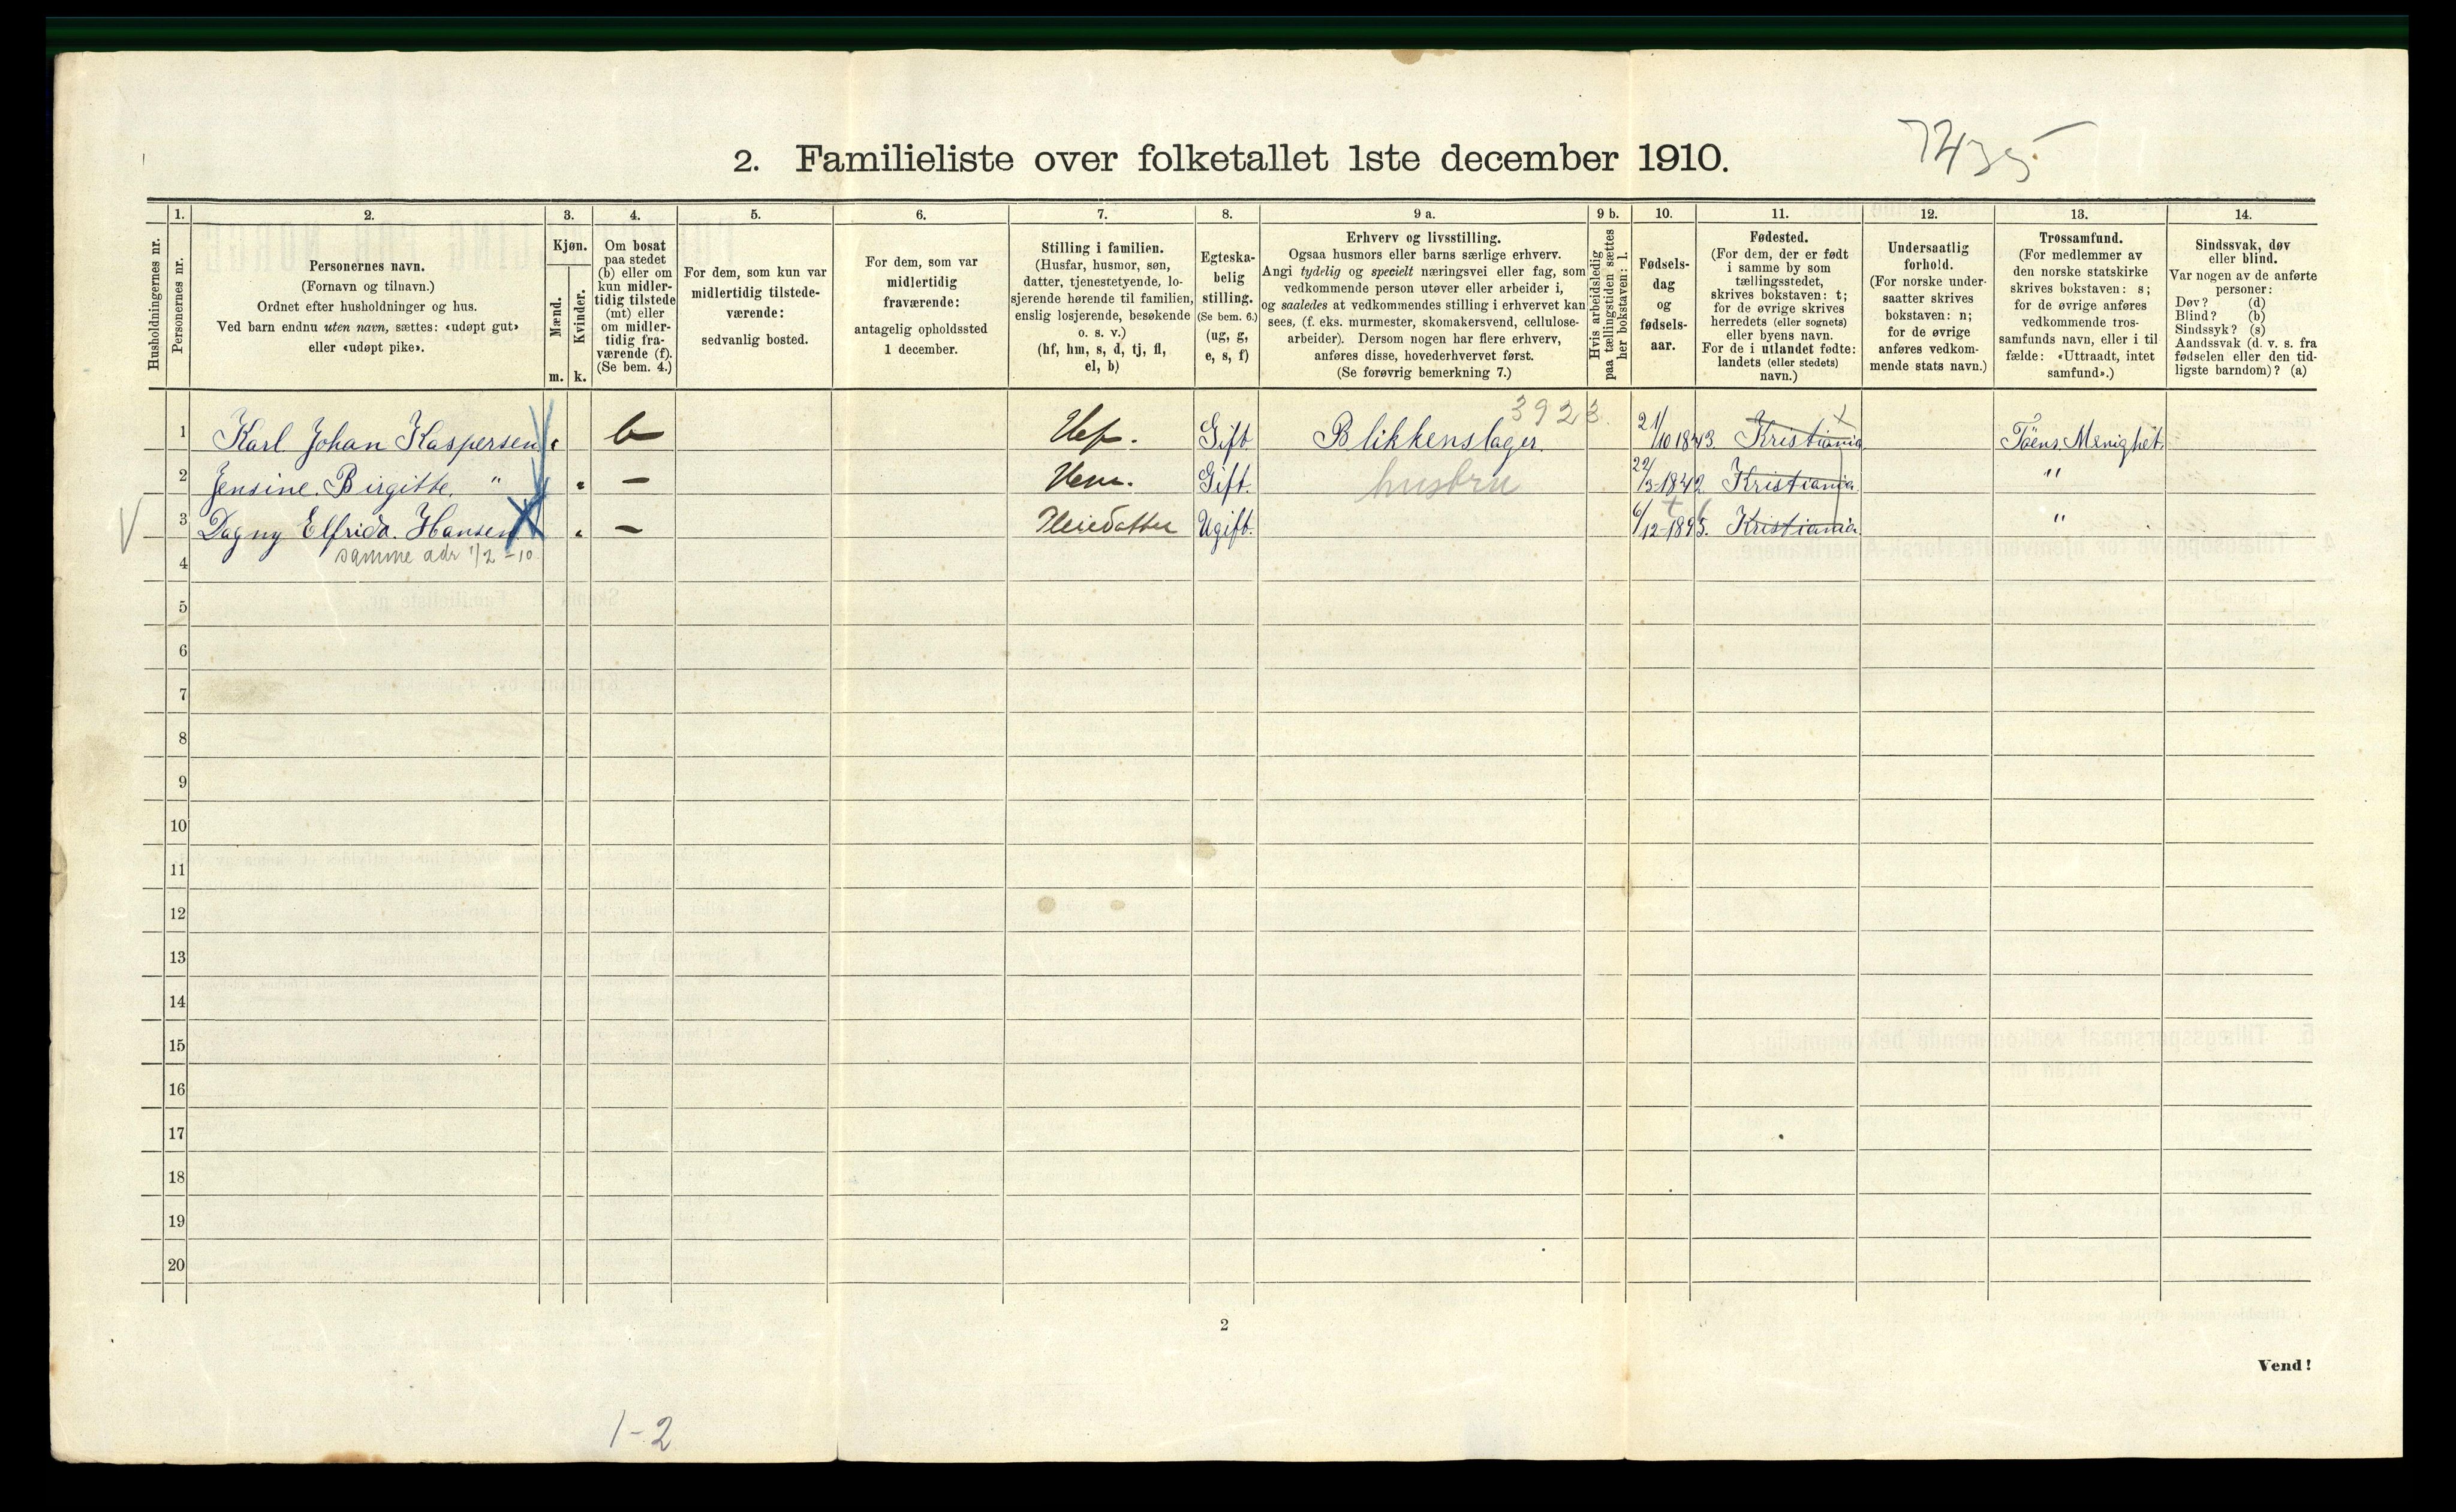 7435
2. Familieliste over folketallet 1ste december 1910.
Husholdningernes nr.
1.
Personernes nr.
2.
Personernes navn.
(Fornavn og tilnavn.)
Ordnet efter husholdninger og hus.
Ved barn endnu uten navn, sættes: «udøpt gut»
eller «udøpt pike».
3.
Kjøn.
Mænd.
Kvinder.
m. k.
4.
Om bosat
paa stedet
(b) eller om
kun midler-
tidig tilstede
(mt) eller
om midler-
tidig fra-
værende (f).
(Se bem. 4.)
5.
For dem, som kun var
midlertidig tilstede-
værende:
sedvanlig bosted.
6.
For dem, som var
midlertidig
fraværende:
antagelig opholdssted
1 december.
7.
Stilling i familien.
(Husfar, husmor, søn,
datter, tjenestetyende, lo-
sjerende hørende til familien,
enslig losjerende, besøkende
o. s. v.)
(hf, hm, s, d, tj, fl,
el, b)
8.
Egteska-
belig
stilling.
(Se bem. 6.)
(ug, g,
e, s, f)
9 a.
Erhverv og livsstilling.
Ogsaa husmors eller barns særlige erhverv.
Angi tydelig og specielt næringsvei eller fag, som
vedkommende person utøver eller arbeider i,
og saaledes at vedkommendes stilling i erhvervet kan
sees, (f. eks. murmester, skomakersvend, cellulose-
arbeider). Dersom nogen har flere erhverv,
anføres disse, hovederhvervet først.
(Se forøvrig bemerkning 7.)
9 b.
Hvis arbeidsledig
paa tællingstiden sættes
her bokstaven: l.
10.
Fødsels-
dag
og
fødsels-
aar.
11.
Fødested.
(For dem, der er født
i samme by som
tællingsstedet,
skrives bokstaven: t;
for de øvrige skrives
herredets (eller sognets)
eller byens navn.
For de i utlandet fødte:
landets (eller stedets)
navn.)
12.
Undersaatlig
forhold.
(For norske under-
saatter skrives
bokstaven: n;
for de øvrige
anføres vedkom-
mende stats navn.)
13.
Trossamfund.
(For medlemmer av
den norske statskirke
skrives bokstaven: s;
for de øvrige anføres
vedkommende tros-
samfunds navn, eller i til-
fælde: «Uttraadt, intet
samfund».)
14.
Sindssvak, døv
eller blind.
Var nogen av de anførte
personer:
Døv? (d)
Blind? (b)
Sindssyk? (s)
Aandssvak (d. v. s. fra
fødselen eller den tid-
ligste barndom)? (a)
3923
1 Karl Johan Kaspersen b Gift Blikkenslager 21/10 1843. Kristiania Tøens Menighet.
2 Jensine Birgitte " — Gift. husbru 22/3-1842 Kristiania "
3 Dagny Elfrida. Hansen — Pleiedatter Ugift. 6/12-1895. Kristiania "
samme adr 1/2-10
4
5
6
7
8
9
10
11
12
13
14
15
16
17
18
19
20
2
Vend!
1-2